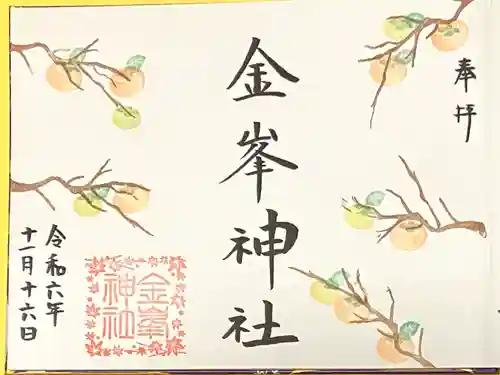 奉拝
金峯神社
金峯
神社
令和六年
十一月十六日